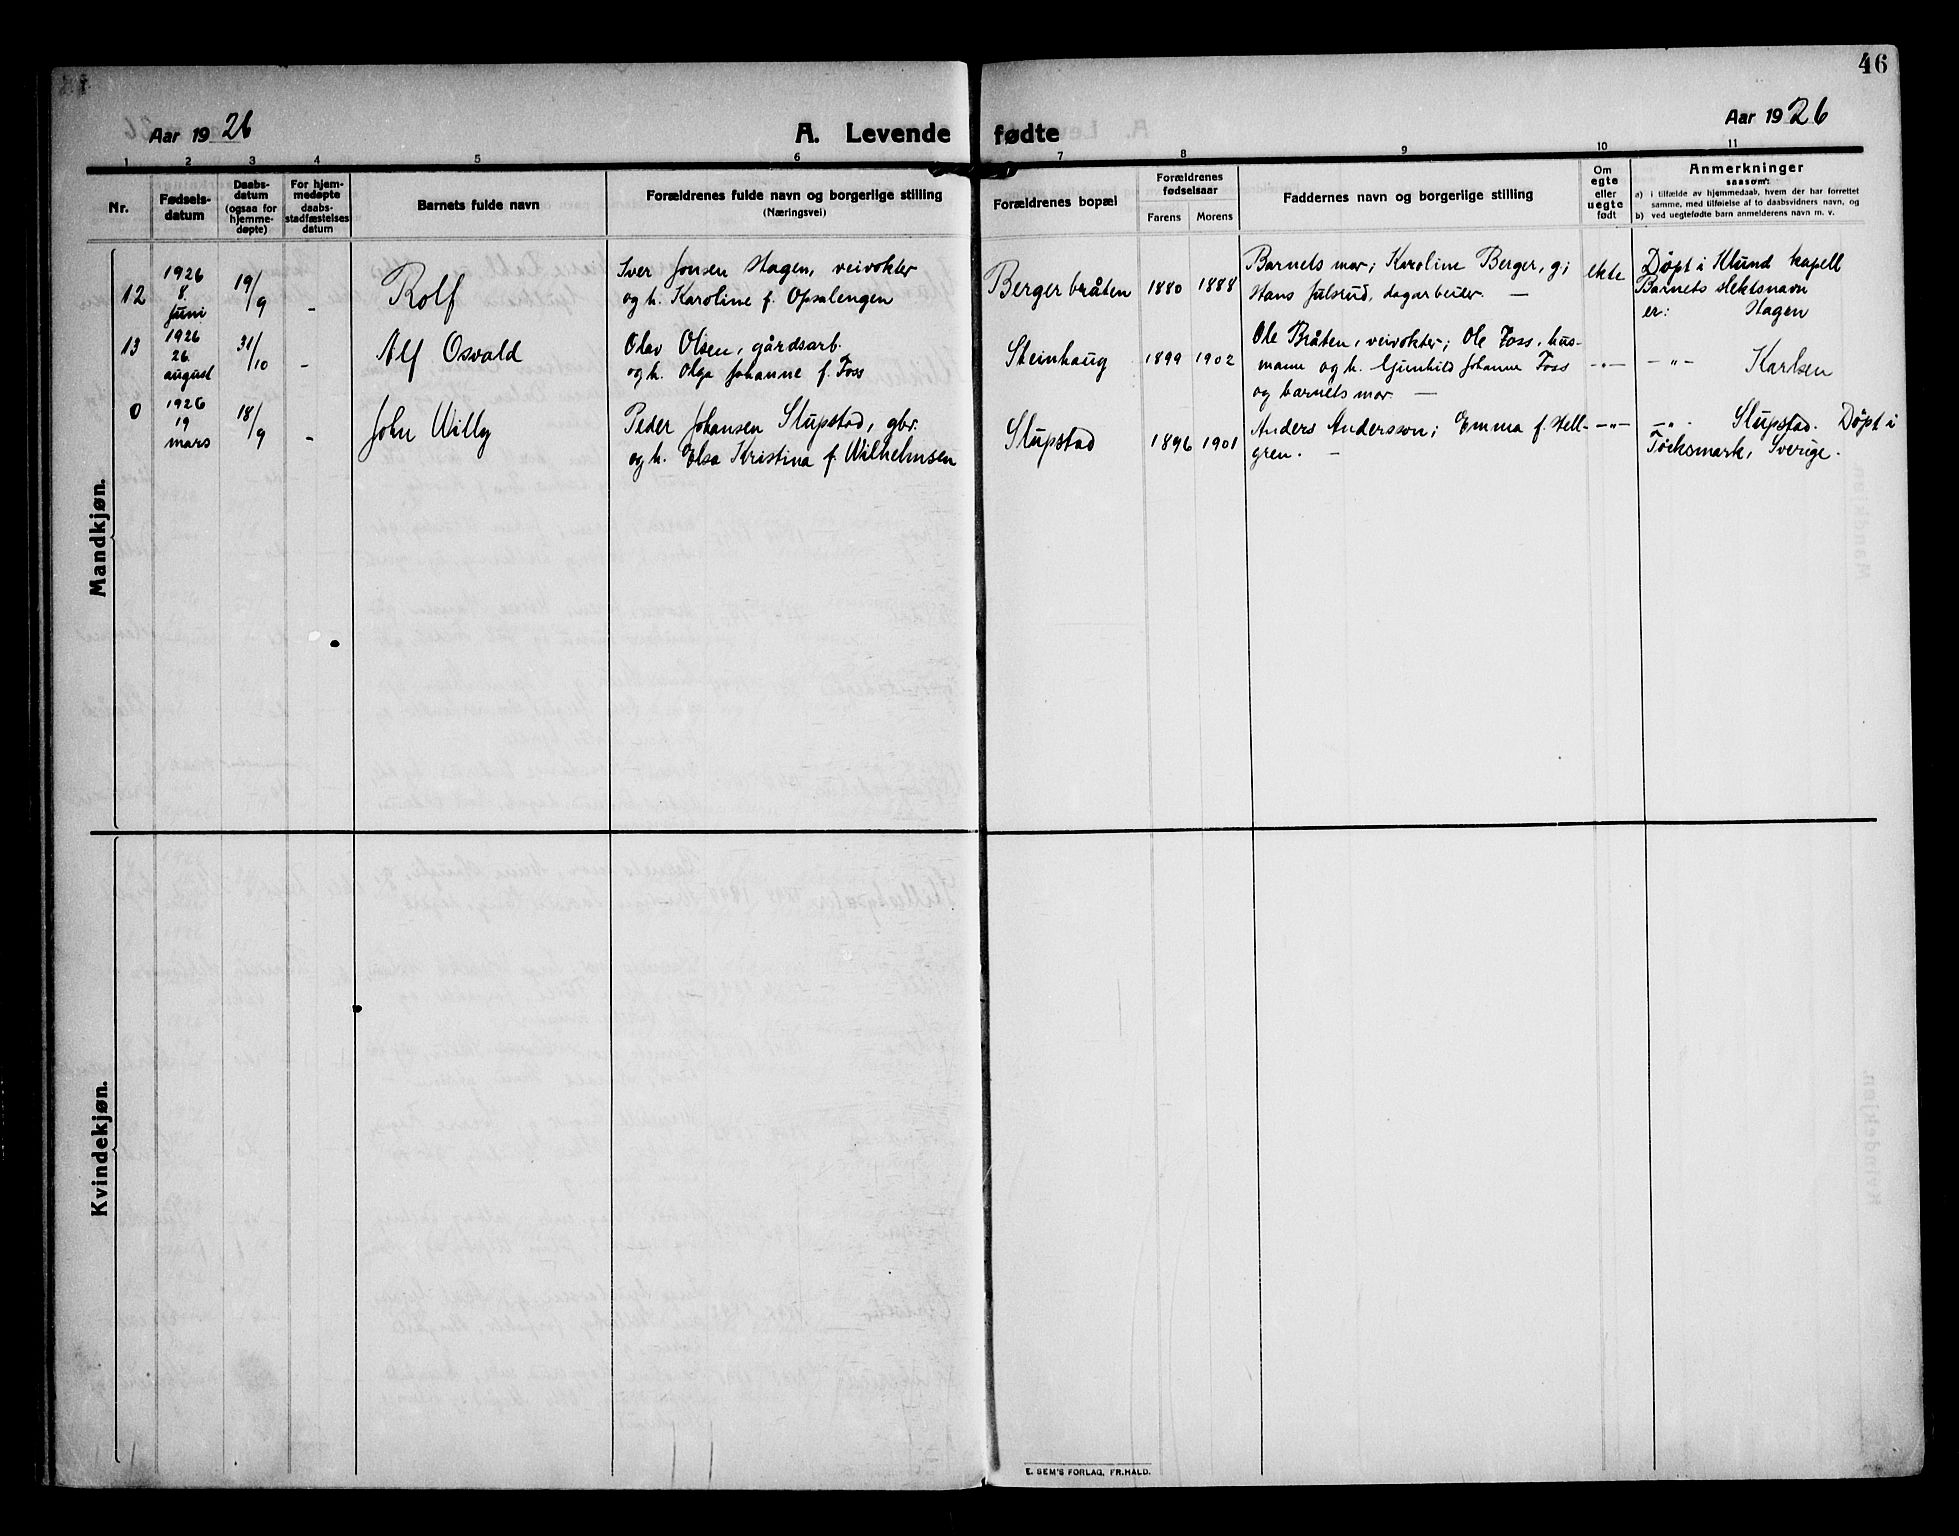 46
Aar 1926
A. Levende fødte
Aar 1926
1 2 3 4 5 6 7 8 9 10 11
Nr.
Fødsels-
datum
Daabs-
datum
(ogsaa for
hjemme-
døpte)
For hjem-
medøpte
daabs-
stadfæstelses
datum
Barnets fulde navn
Forældrenes fulde navn og borgerlige stilling
(Næringsvei)
Forældrenes bopæl
Forældrenes
fødselsaar
Farens Morens
Faddernes navn og borgerlig stilling
Om
egte
eller
uegte
født
Anmerkninger
saasom:
a) i tilfælde av hjemmedaab, hvem der har forrettet
samme, med tilføielse af to daabsvidners navn, og
b) ved uegtefødte barn anmelderens navn m. v.
Mandkjøn.
12
1926
8.
juni
19/9
-
Rolf
Iver Jonsen Hagen, veivokter
og h. Karoline f. Opsalengen
Bergerbråten
1880 1888
Barnets mor; Karoline Berger, g;
Hans Julsrud, dagarbeider. —
ekte
Døpt i kapell
Barnets slektsnavn
er: Hagen
13
1926
26
august
31/10
-
Alf Osvald
Olav Olsen, gårdsarb.
og h. Olga Johanne f. Foss
Steinhaug
1899 1902
Ole Bråten, veivokter; Ole Foss, hus-
mann og h. Gunhild Johanne Foss
og barnets mor. —
-"-
-"- Karlsen
0
1926
19
mars
18/9
-
John Willy
Peder Johansen Slupstad, gbr.
og h. Elsa Kristina f. Wilhelmsen
Slupstad
1896 1901
Anders Andersson; Emma f. Hell-
gren. —
-"-
-"- Slupstad. Døpt i
Töcksmark, Sverige.
Kvindekjøn.
E. SEM'S FORLAG, FR.HALD.